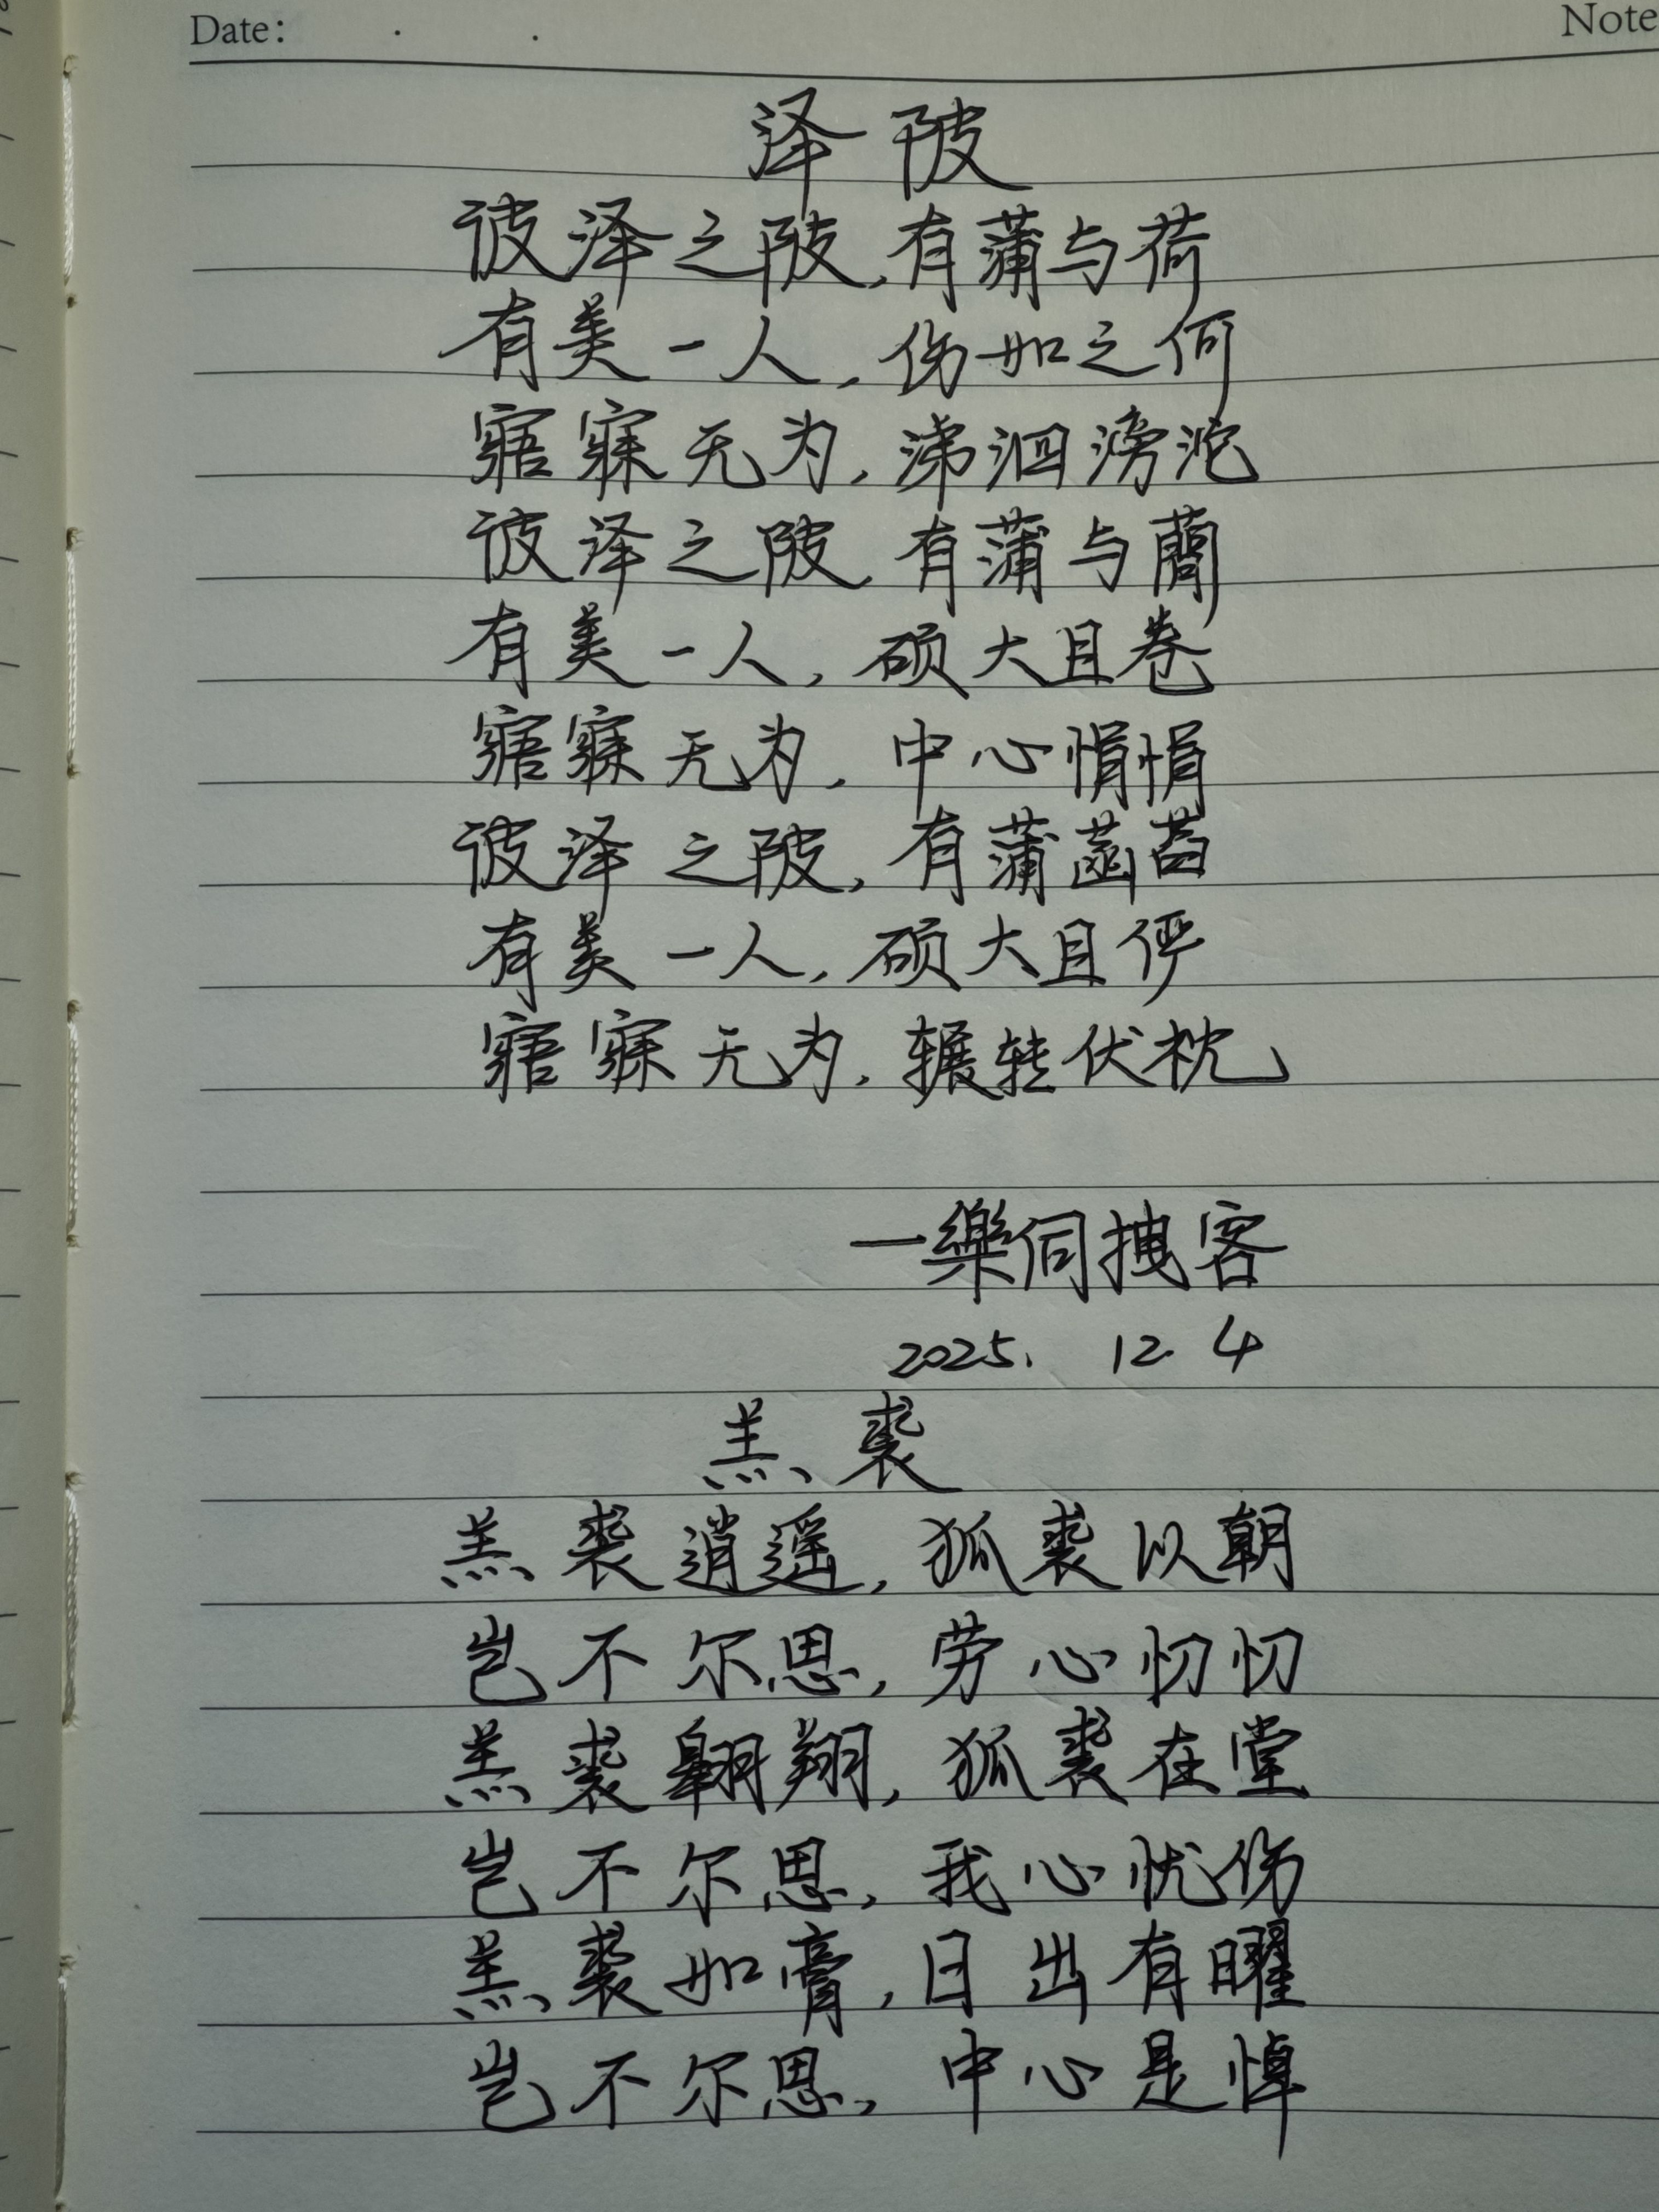 Date:
Note
泽陂
彼泽之陂,有蒲与荷
有美一人,伤如之何
寤寐无为,涕泗滂沱
彼泽之陂,有蒲与蕳
有美一人,硕大且卷
寤寐无为,中心悁悁
彼泽之陂,有蒲菡萏
有美一人,硕大且俨
寤寐无为,辗转伏枕
一樂伺拽客
2025. 12. 4
羔裘
羔裘逍遥,狐裘以朝
岂不尔思,劳心忉忉
羔裘翱翔,狐裘在堂
岂不尔思,我心忧伤
羔裘如膏,日出有曜
岂不尔思,中心是悼